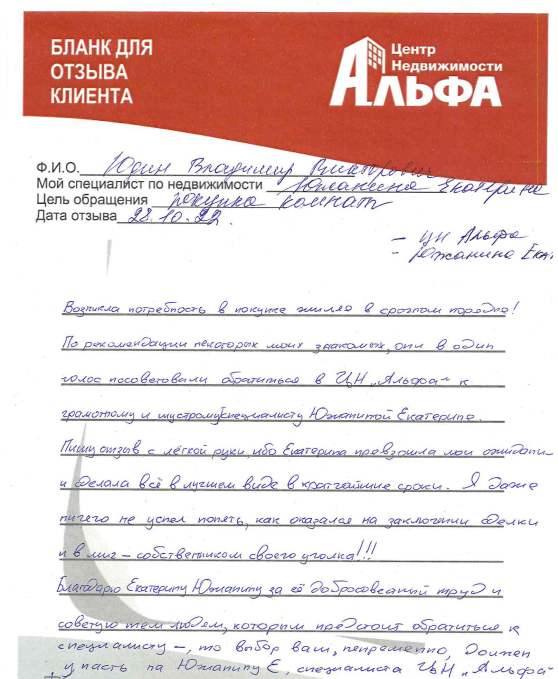 БЛАНК ДЛЯ
ОТЗЫВА
КЛИЕНТА
Центр
Недвижимости
АЛЬФА
Ф.И.О. Юдин Владимир Викторович
Мой специалист по недвижимости Южанина Екатерина
Цель обращения покупка комнат
Дата отзыва 28.10.22
– ЦН Альфа
– Южанина Екат
Возникла потребность в покупке жилья в срочном порядке!
По рекомендации некоторых моих знакомых, они в один
голос посоветовали обратиться в ЦН „Альфа“ к
грамотному и шустрому специалисту Южаниной Екатерине.
Пишу отзыв с лёгкой руки, ибо Екатерина превзошла мои ожидани
и сделала всё в лучшем виде в кратчайшие сроки. Я даже
ничего не успел понять, как оказался на заключении сделки
и в миг – собственником своего уголка!!!
Благодарю Екатерину Южанину за её добросовестный труд и
советую тем людям, которым предстоит обратиться к
специалисту –, то выбор ваш, непременно, должен
упасть на Южанину Е, специалиста ЦН „Альфа